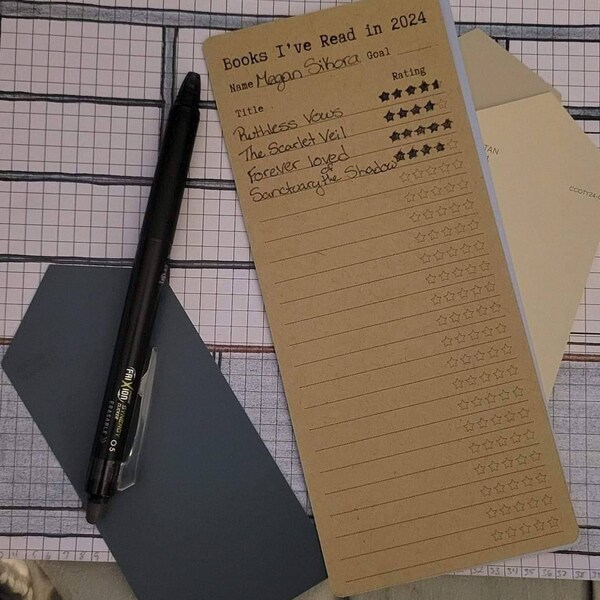 Books I've Read in 2024
Name Megan Sikora Goal
Title Rating
Ruthless Vows
The Scarlet Veil
Forever loved
Sanctuary of the Shadow
FRIXION
SYNERGY
ERASABLE 0.5
TAN